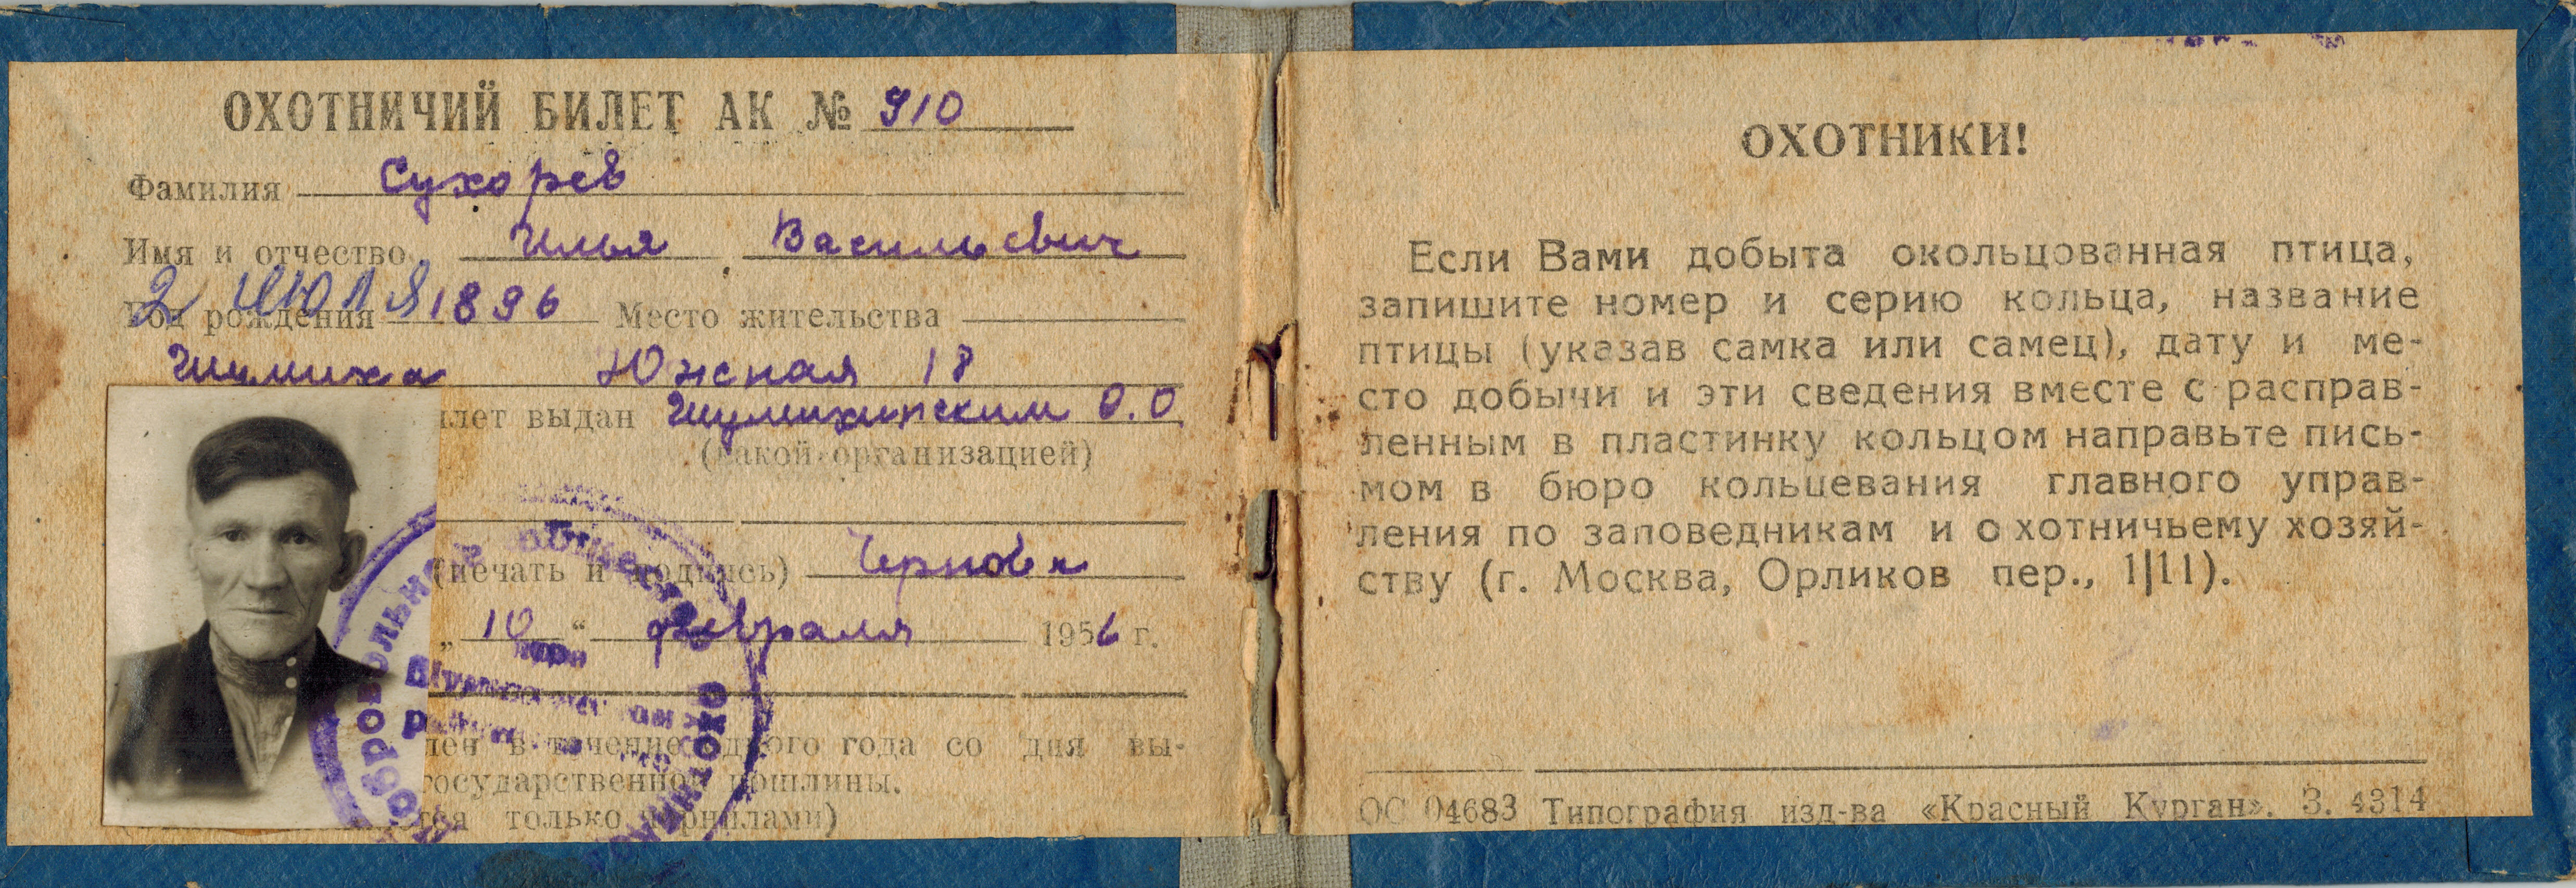 ОХОТНИЧИЙ БИЛЕТ АК № 910
Фамилия Сухорев
Имя и отчество Илья Васильевич
2 июля
Год рождения 1896 Место жительства
Шумиха Южная 18
илет выдан Шумихинским О.О.
(какой организацией)
(печать и подпись)
„10“ февраля 1956 г.
в течение одного года со дня вы-
государственной пошлины.
тся только чернилами)
добровольное общество
охотников
ОХОТНИКИ!
Если Вами добыта окольцованная птица,
запишите номер и серию кольца, название
птицы (указав самка или самец), дату и ме-
сто добычи и эти сведения вместе с расправ-
ленным в пластинку кольцом направьте пись-
мом в бюро кольцевания главного управ-
ления по заповедникам и охотничьему хозяй-
ству (г. Москва, Орликов пер., 1|11).
ОС 04683 Типография изд-ва «Красный Курган». З. 4314